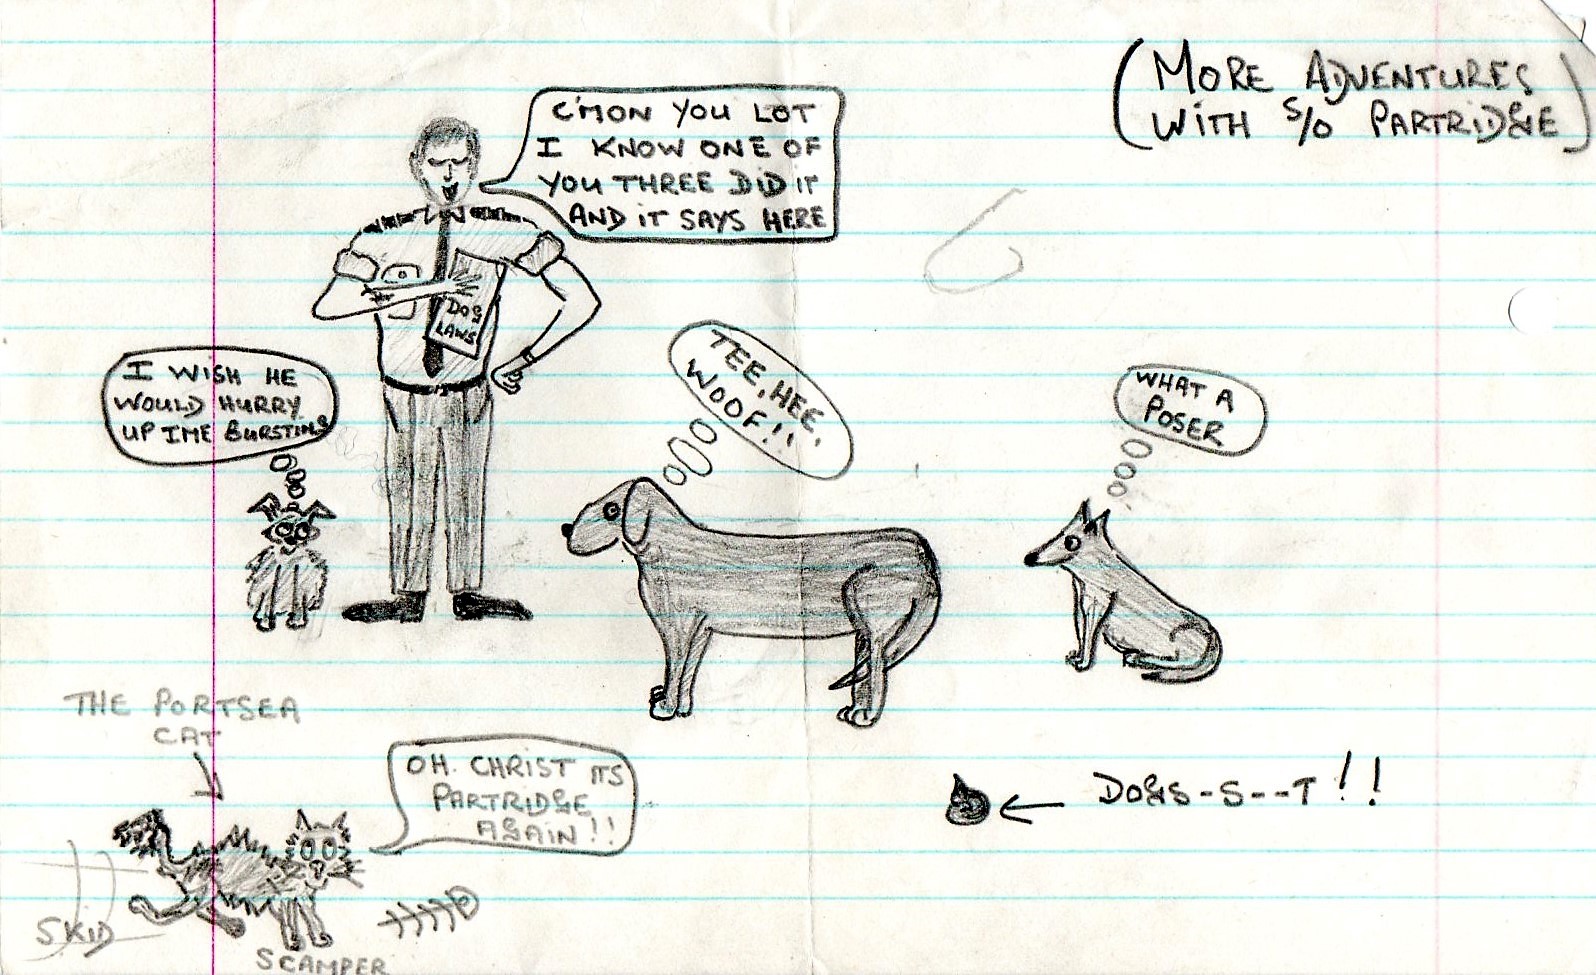 (MORE ADVENTURES
WITH S/O PARTRIDGE)
C'MON YOU LOT
I KNOW ONE OF
YOU THREE DID IT
AND IT SAYS HERE
DOG
LAWS
I WISH HE
WOULD HURRY
UP IME BURSTING
TEE, HEE,
WOOF!!
WHAT A
POSER
THE PORTSEA
CAT
OH. CHRIST ITS
PARTRIDGE
AGAIN!!
DOGS-S--T!!
SKID
SCAMPER